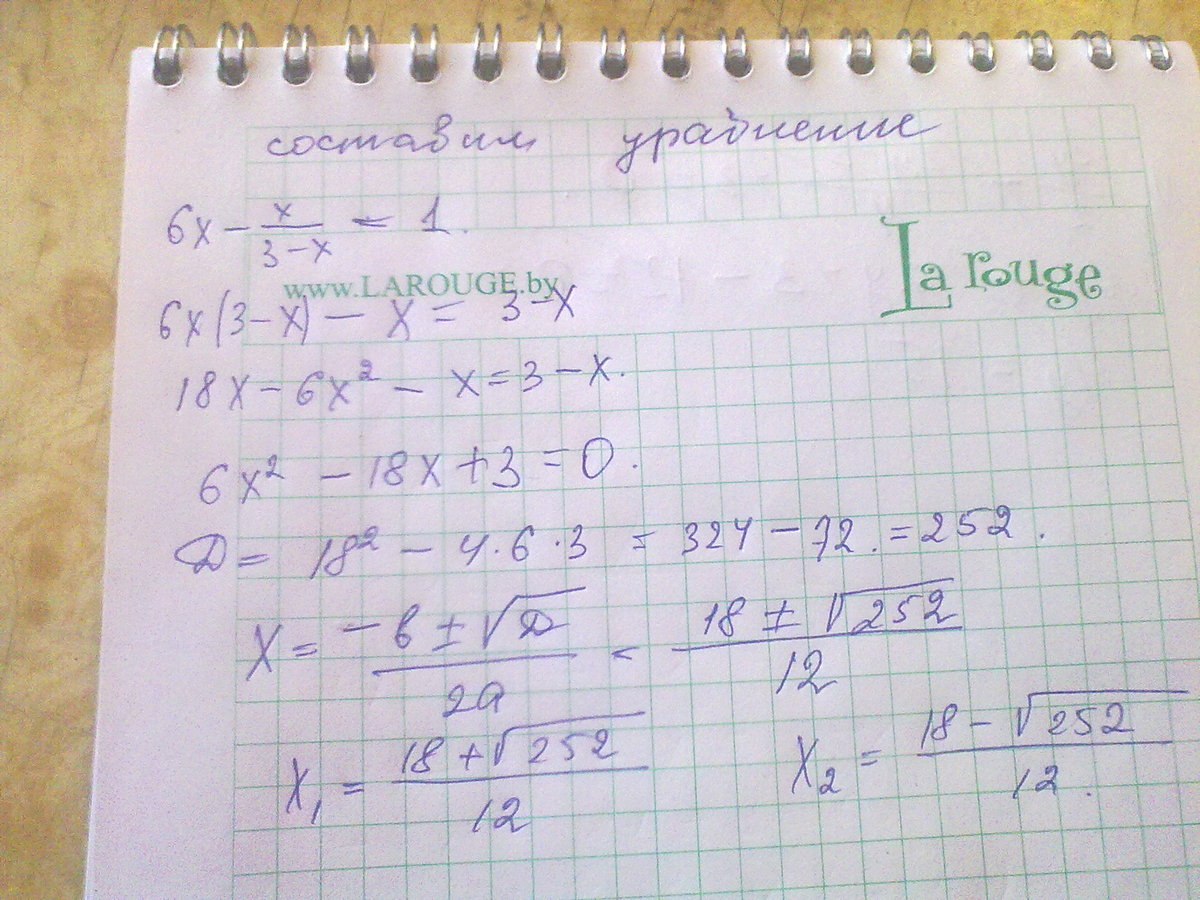 составим уравнение
6x - x/(3-x) = 1.
www.LAROUGE.by
La rouge
6x(3-x) - x = 3-x
18x - 6x² - x = 3 - x.
6x² - 18x + 3 = 0.
D = 18² - 4·6·3 = 324 - 72. = 252.
X = (-b ± √D)/(2a) = (18 ± √252)/12
X₁ = (18 + √252)/12 X₂ = (18 - √252)/12.